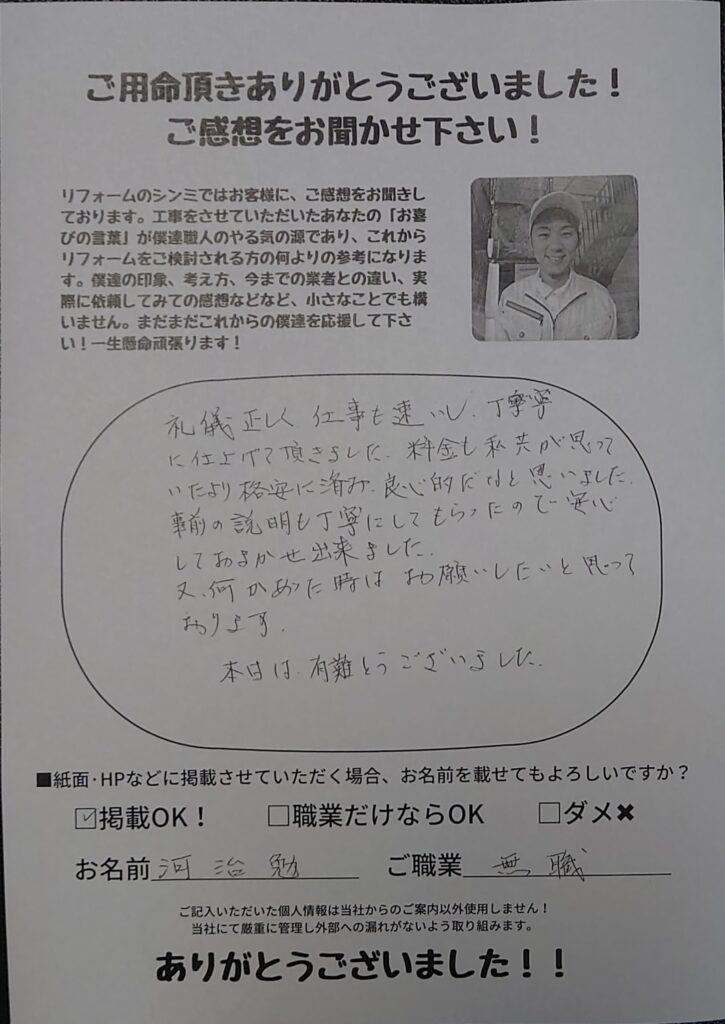 ご用命頂きありがとうございました！
ご感想をお聞かせ下さい！
リフォームのシンミではお客様に、ご感想をお聞きし
ております。工事をさせていただいたあなたの「お喜
びの言葉」が僕達職人のやる気の源であり、これから
リフォームをご検討される方の何よりの参考になりま
す。僕達の印象、考え方、今までの業者との違い、実
際に依頼してみての感想などなど、小さなことでも構
いません。まだまだこれからの僕達を応援して下さ
い！一生懸命頑張ります！
礼儀正しく仕事も速いし、丁寧
に仕上げて頂きました。料金も私共が思って
いたより格安に済み、良心的だなと思いました。
事前の説明も丁寧にしてもらったので安心
しておまかせ出来ました。
又、何かあった時はお願いしたいと思って
おります。
本日は、有難とうございました。
■紙面・HPなどに掲載させていただく場合、お名前を載せてもよろしいですか？
☑掲載OK！ □職業だけならOK □ダメ✖
お名前 河治勉 ご職業 無職
ご記入いただいた個人情報は当社からのご案内以外使用しません！
当社にて厳重に管理し外部への漏れがないよう取り組みます。
ありがとうございました！！